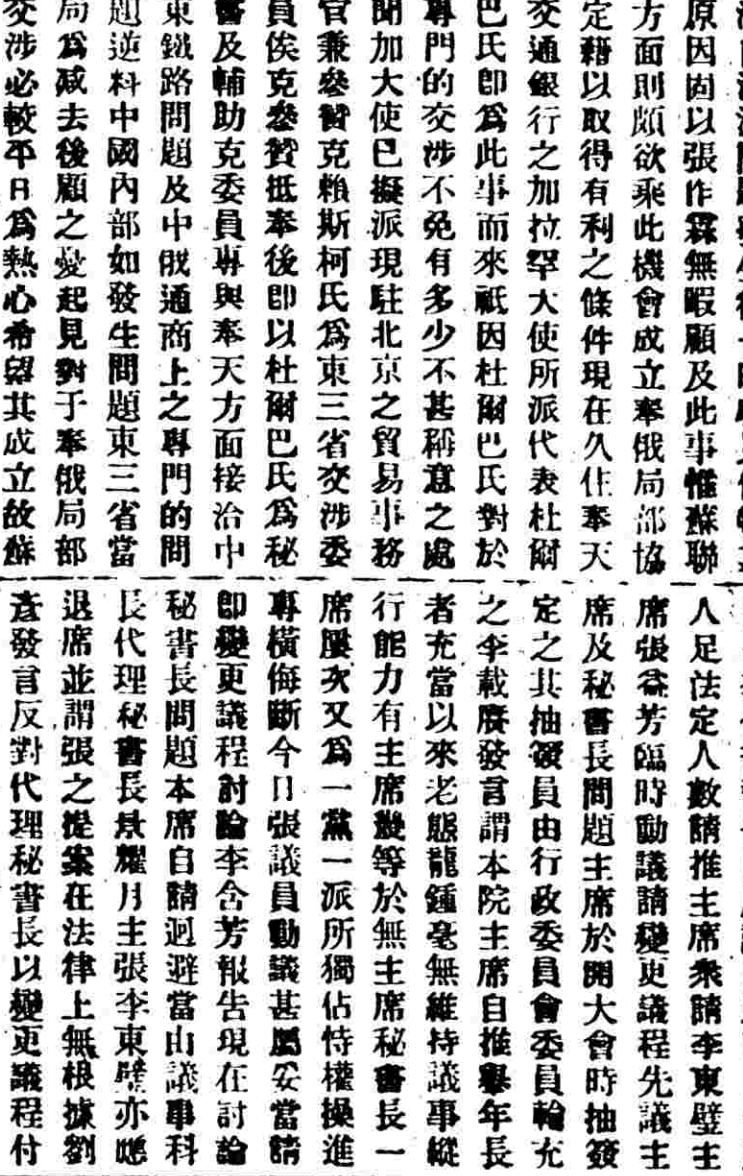 原因固以張作霖無暇顧及此事惟蘇聯
方面則頗欲乘此機會成立奉俄局部協
定藉以取得有利之條件現在久住奉天
交通銀行之加拉罕大使所派代表杜爾
巴氏即爲此事而來祇因杜爾巴氏對於
專門的交涉不免有多少不甚稱意之處
聞加大使已擬派現駐北京之貿易事務
官兼參贊克賴斯柯氏爲東三省交涉委
員俟克參贊抵奉後即以杜爾巴氏爲秘
書及輔助克委員專與奉天方面接洽中
東鐵路問題及中俄通商上之專門的問
題逆料中國內部如發生問題東三省當
局爲减去後顧之憂起見對于奉俄局部
交涉必較平日爲熱心希望其成立故蘇
人足法定人數請推主席衆請李東璧主
席張益芳臨時動議請變更議程先議主
席及秘書長問題主席於開大會時抽簽
定之其抽簽員由行政委員會委員輪充
之李載賡發言謂本院主席自推舉年長
者充當以來老態龍鍾毫無維持議事縱
行能力有主席幾等於無主席秘書長一
席屢次又爲一黨一派所獨佔恃權操進
專橫侮斷今日張議員動議甚屬妥當請
即變更議程討論李含芳報告現在討論
秘書長問題本席自請迴避當由議事科
長代理秘書長景耀月主張李東璧亦應
退席並謂張之提案在法律上無根據劉
彥發言反對代理秘書長以變更議程付